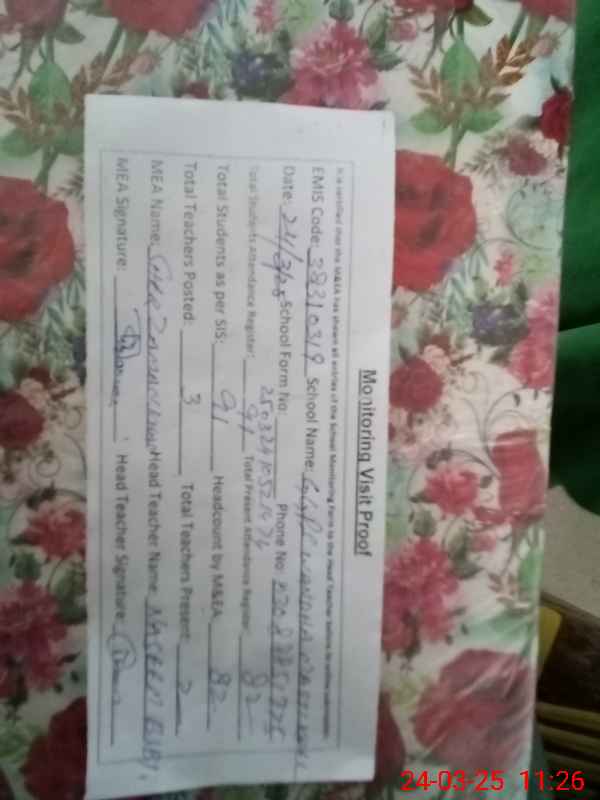 Monitoring Visit Proof
It is certified that the M&EA has shown all entries of the School Monitoring Form to the Head Teacher before its online submission.
EMIS Code: 38310319 School Name:
Date: 24/3/25 School Form No: 25032410521474 Phone No:
Total Students Attendance Register: 91 Total Present Attendance Register: 82
Total Students as per SIS: 91 Headcount by M&EA 82
Total Teachers Posted: 3 Total Teachers Present:
MEA Name: Head Teacher Name: NASREEN BIBI
MEA Signature: Head Teacher Signature:
24-03-25 11:26